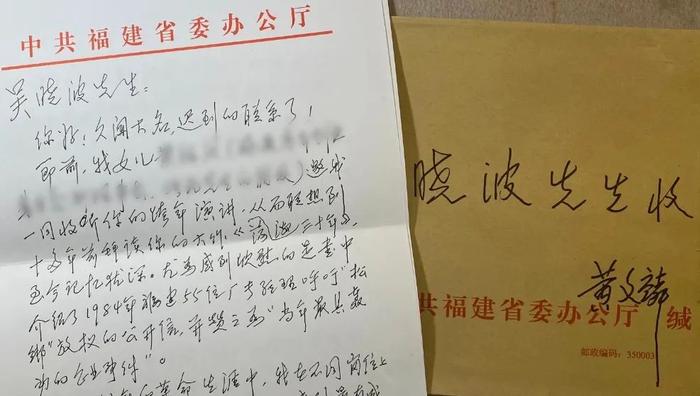 中共福建省委办公厅
吴晓波先生:
你好!久闻大名,迟到的联系了!
即前,我女儿
邀我
一同收听你的跨年演讲,从而联想到
十多年前拜读你的大作,《激荡三十年》,
至今记忆犹深。尤为感到欣慰的是书中
介绍了1984年福建55位厂长经理呼吁"松
绑"放权的公开信,并赞之为"当年最具轰
动的企业事件"。
革命生涯中,我在不同岗位上
晓波先生收
黄文麟
中共福建省委办公厅 缄
邮政编码:350003